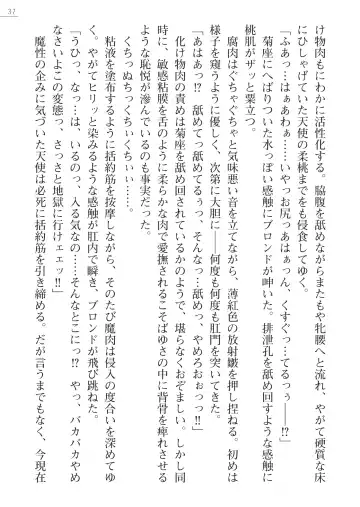 37
け物肉もにわかに活性化する。脇腹を舐めながらまたもや牝腰へと流れ、やがて硬質な床
にひしゃげていた天使の柔桃までをも侵食してゆく。
「ふあっ…はぁぁあわぁ……いやっお尻っあはぁっん、くすぐっ…てるっぅ――⁉」
　菊座にへばりついた水っぽい感触にブロンドが呻いた。排泄孔を舐め回すような感触に
桃肌がザッと粟立つ。
　腐肉はぐちゃぐちゃと気味悪い音を立てながら、薄紅色の放射皺を押し捏ねる。初めは
様子を窺うように優しく、次第に大胆に――何度も何度も肛門を突いてくる。
「あはぁっ⁉　舐めて舐めてるぅっ、そんなっ…舐めっ、やめろぉぉっ‼」
　化け物肉の責めは菊座を舐め回されているかのようで、堪らなくおぞましい。しかし同
時に、敏感粘膜を舌のように柔らかな肉で愛撫されるこそばゆさの中に背骨を痺れさせる
ような恥悦が滲んでいるのも事実だった。
　くちっぬちっくちぃくちぃ……。
　粘液を塗布するように括約筋を按摩しながら、そのたび魔肉は侵入の度合いを深めてゆ
く。やがてヒリッと染みるような感触が肛内で瞬き、ブロンドが飛び跳ねた。
「うひっ、な…は、いるのっ、入る気なの……そんなとこにっ⁉　やっ、バカバカやめ
なさいよこの変態っ、さっさと地獄に行けェッ‼」
　魔性の企みに気づいた天使は必死に括約筋を引き締める。だが言うまでもなく、今現在